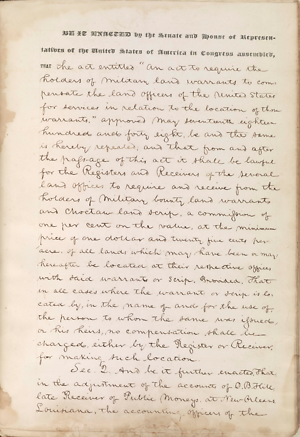 BE IT ENACTED by the Senate and House of Represen-
tatives of the United States of America in Congress assembled,
THAT the act entitled "An act to require the
holders of Military land warrants to com-
pensate the land officers of the United States
for services in relation to the location of those
warrants," approved May seventeenth eighteen
hundred and forty eight, be and the same
is hereby repealed, and that from and after
the passage of this act it shall be lawful
for the Registers and Receivers of the several
land offices to require and receive from the
holders of Military bounty land warrants
and Choctaw land scrip, a commission of
one per cent on the value, at the minimum
price of one dollar and twenty five cents per
acre, of all lands which may have been or may
hereafter be located at their respective offices
with said warrant or scrip, Provided, That
in all cases where the warrant or scrip is lo-
cated by, in the name of, and for the use of,
the person to whom the same was issued,
or his heirs, no compensation shall be
charged, either by the Register or Receiver,
for making such location.
Sec. 2. And be it further enacted, That
in the adjustment of the accounts of O.B. Hill,
late Receiver of Public Moneys, at New Orleans
Louisiana, the accounting officers of the